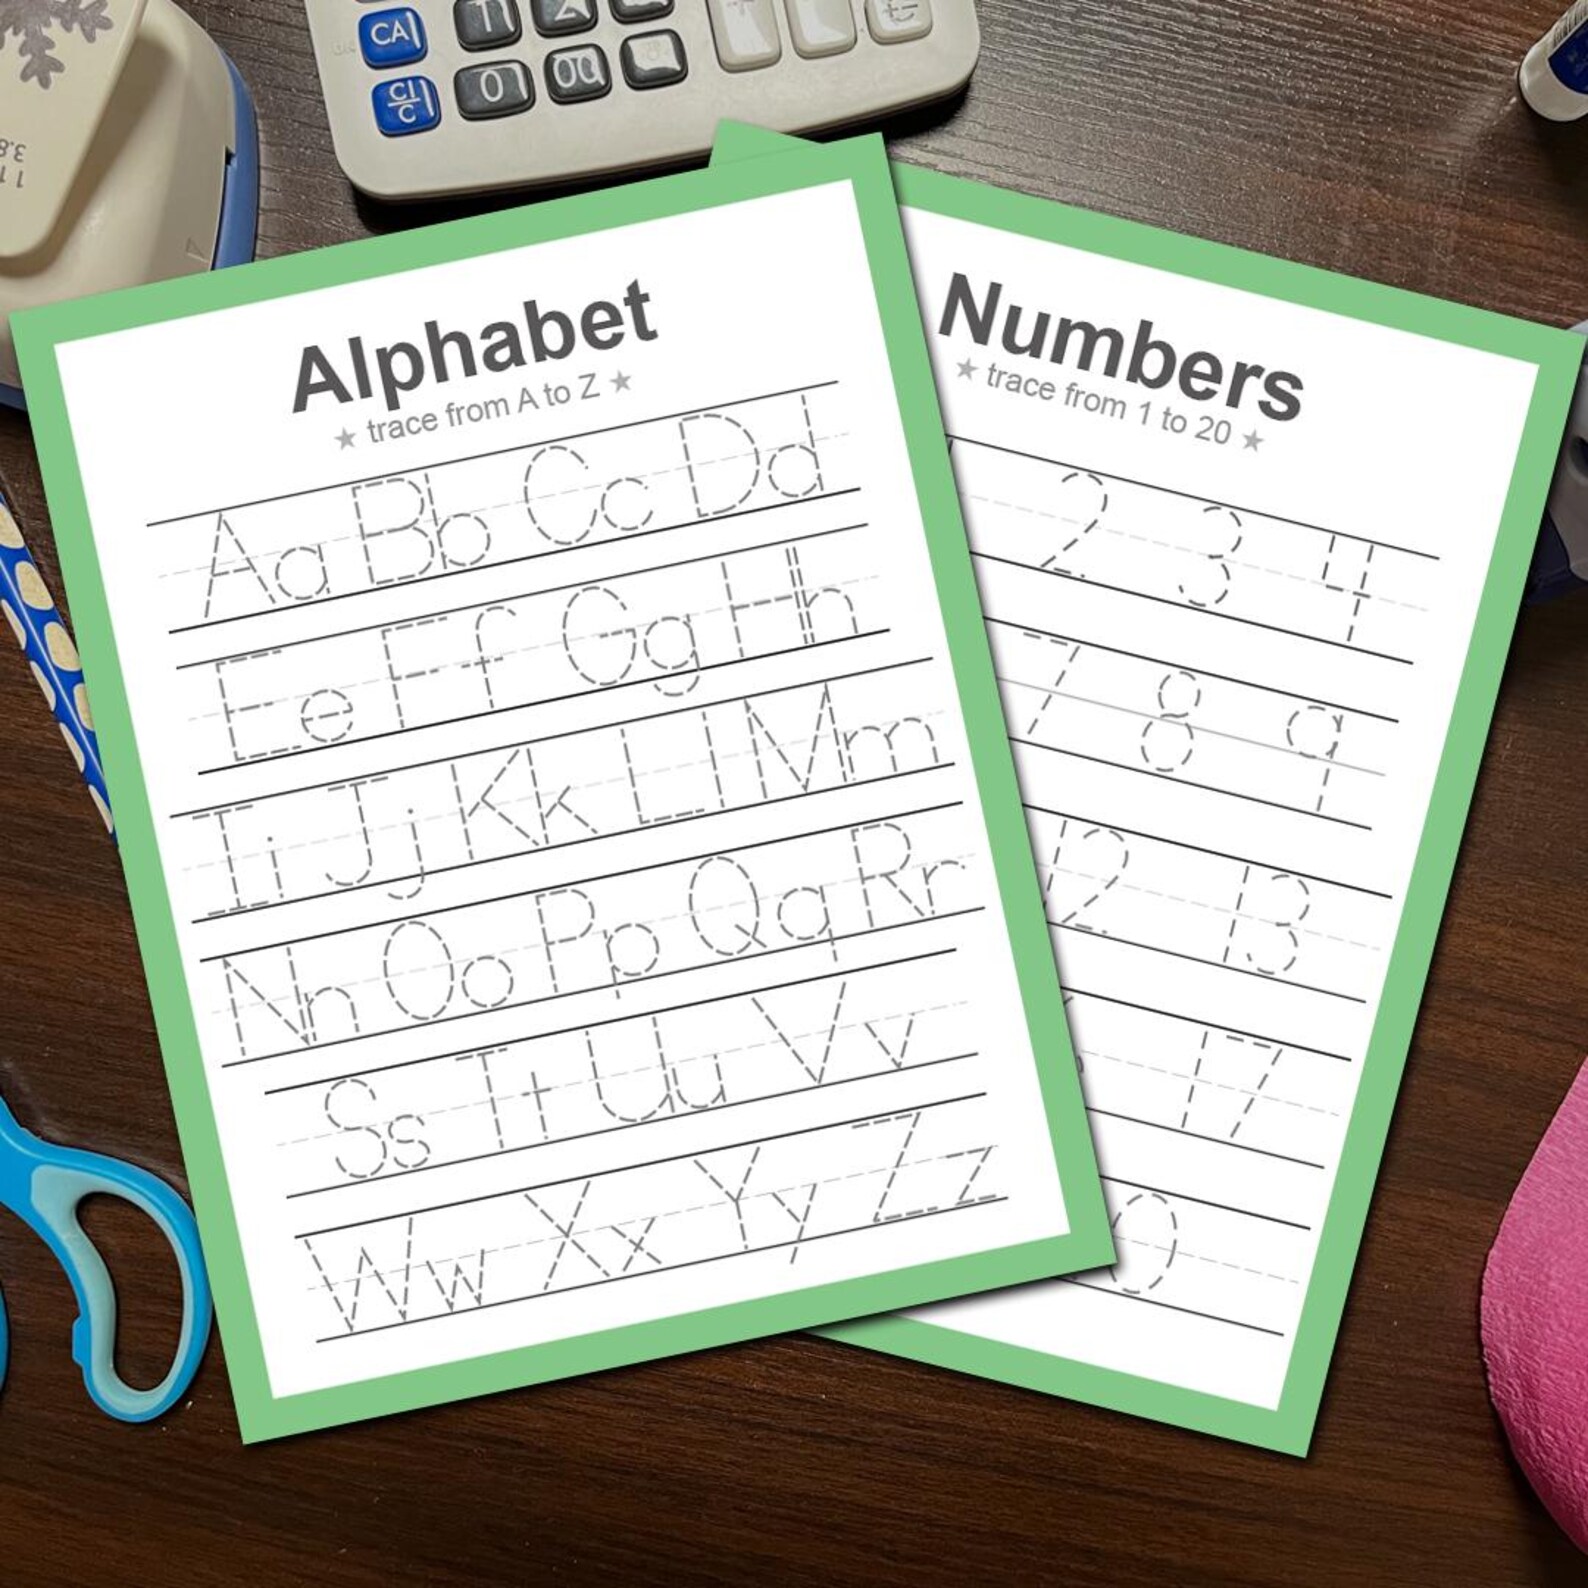 CA
CI/C
0
00
3.8
Alphabet
★ trace from A to Z ★
Aa Bb Cc Dd
Ee Ff Gg Hh
Ii Jj Kk Ll Mm
Nn Oo Pp Qq Rr
Ss Tt Uu Vv
Ww Xx Yy Zz
Numbers
★ trace from 1 to 20 ★
2 3 4
7 8 9
12 13
17
0